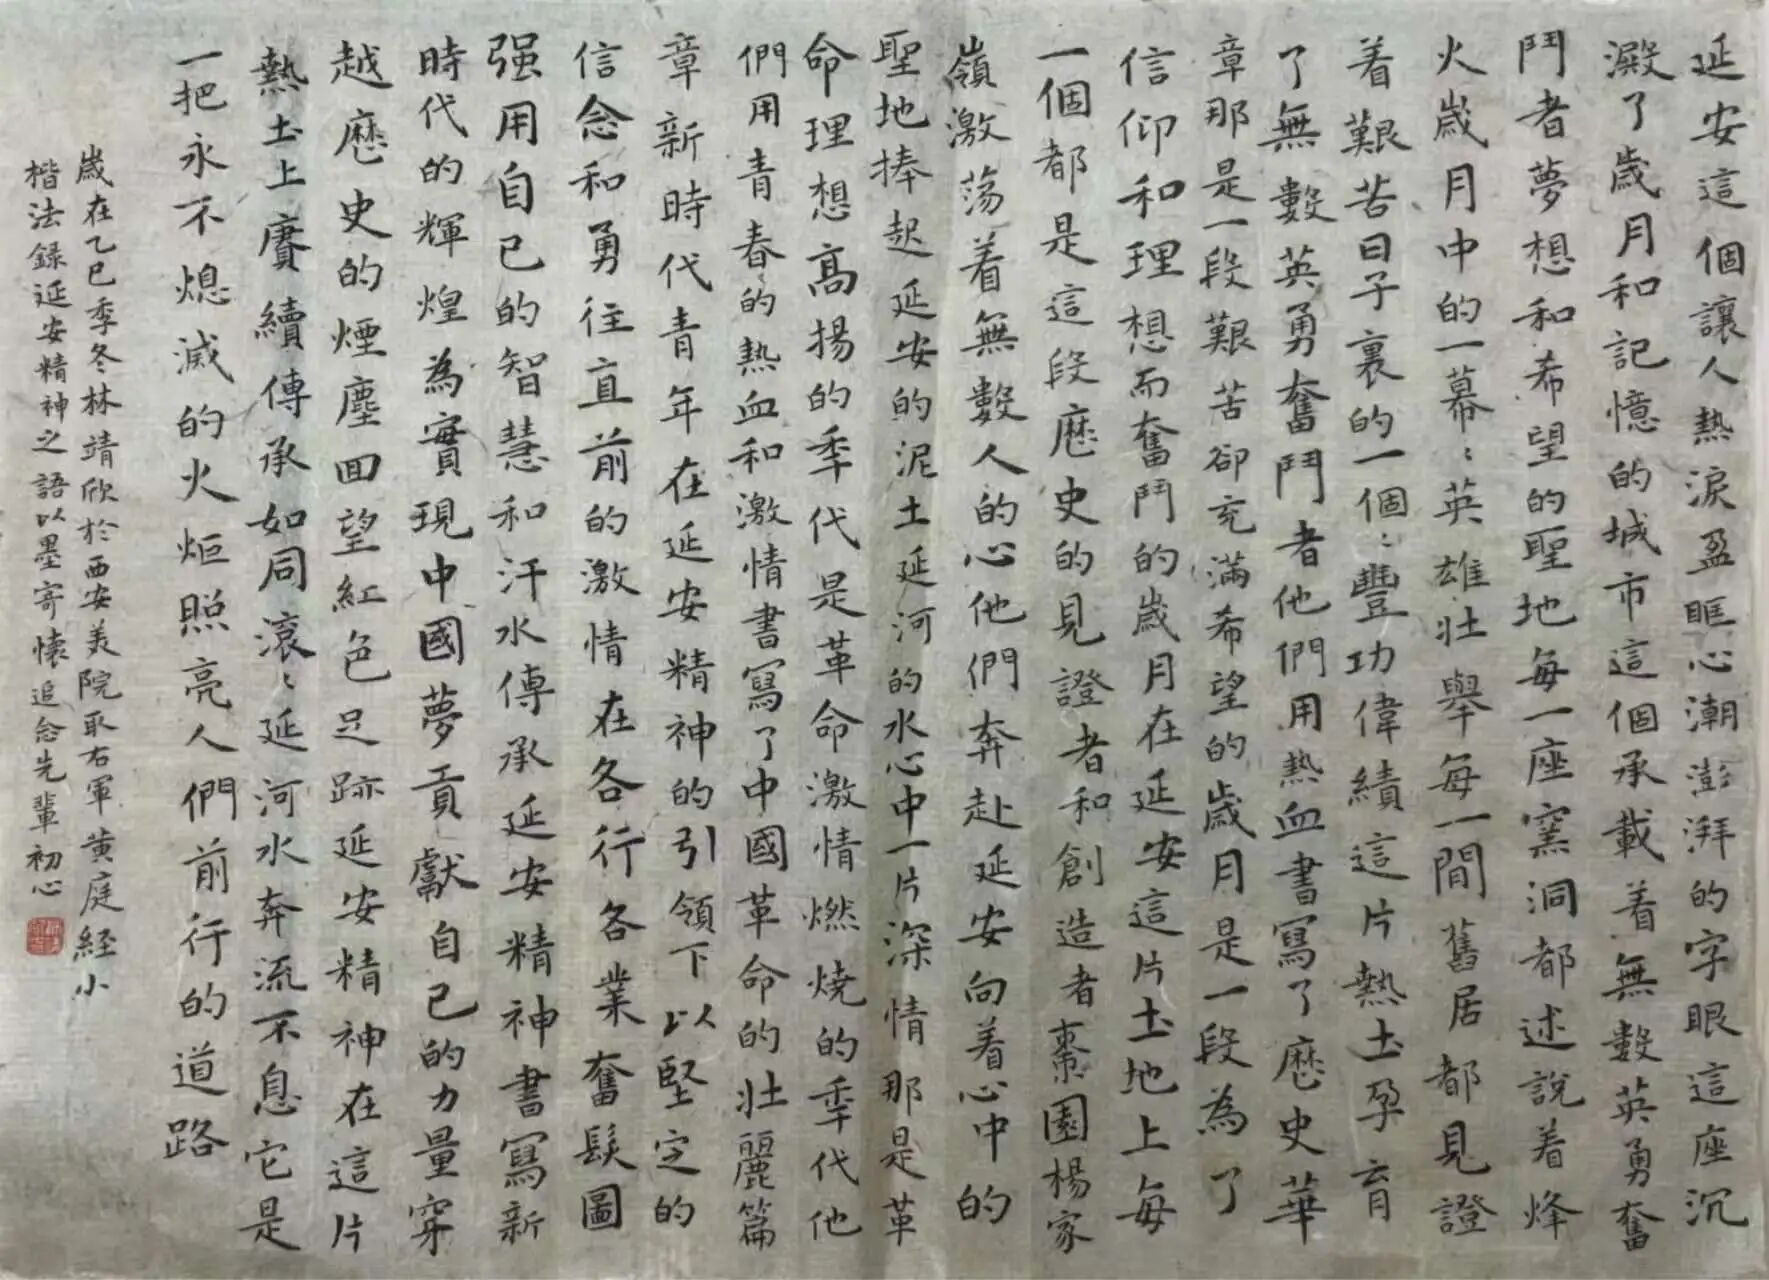 延安這個讓人熱淚盈眶心潮澎湃的字眼這座沉
澱了歲月和記憶的城市這個承載着無數英勇奮
鬥者夢想和希望的聖地每一座窯洞都述說着烽
火歲月中的一幕〻英雄壯舉每一間舊居都見證
着艱苦日子裏的一個〻豐功偉績這片熱土孕育
了無數英勇奮鬥者他們用熱血書寫了歷史華
章那是一段艱苦卻充滿希望的歲月是一段為了
信仰和理想而奮鬥的歲月在延安這片土地上每
一個都是這段歷史的見證者和創造者棗園楊家
嶺激蕩着無數人的心他們奔赴延安向着心中的
聖地捧起延安的泥土延河的水心中一片深情那是革
命理想高揚的年代是革命激情燃燒的年代他
們用青春的熱血和激情書寫了中國革命的壯麗篇
章新時代青年在延安精神的引領下以堅定的
信念和勇往直前的激情在各行各業奮髮圖
强用自己的智慧和汗水傳承延安精神書寫新
時代的輝煌為實現中國夢貢獻自己的力量穿
越歷史的煙塵回望紅色足跡延安精神在這片
熱土上賡續傳承如同滚〻延河水奔流不息它是
一把永不熄滅的火炬照亮人們前行的道路
歲在乙巳季冬林靖欣於西安美院取右軍黄庭経小
楷法録延安精神之語以墨寄懐追念先輩初心